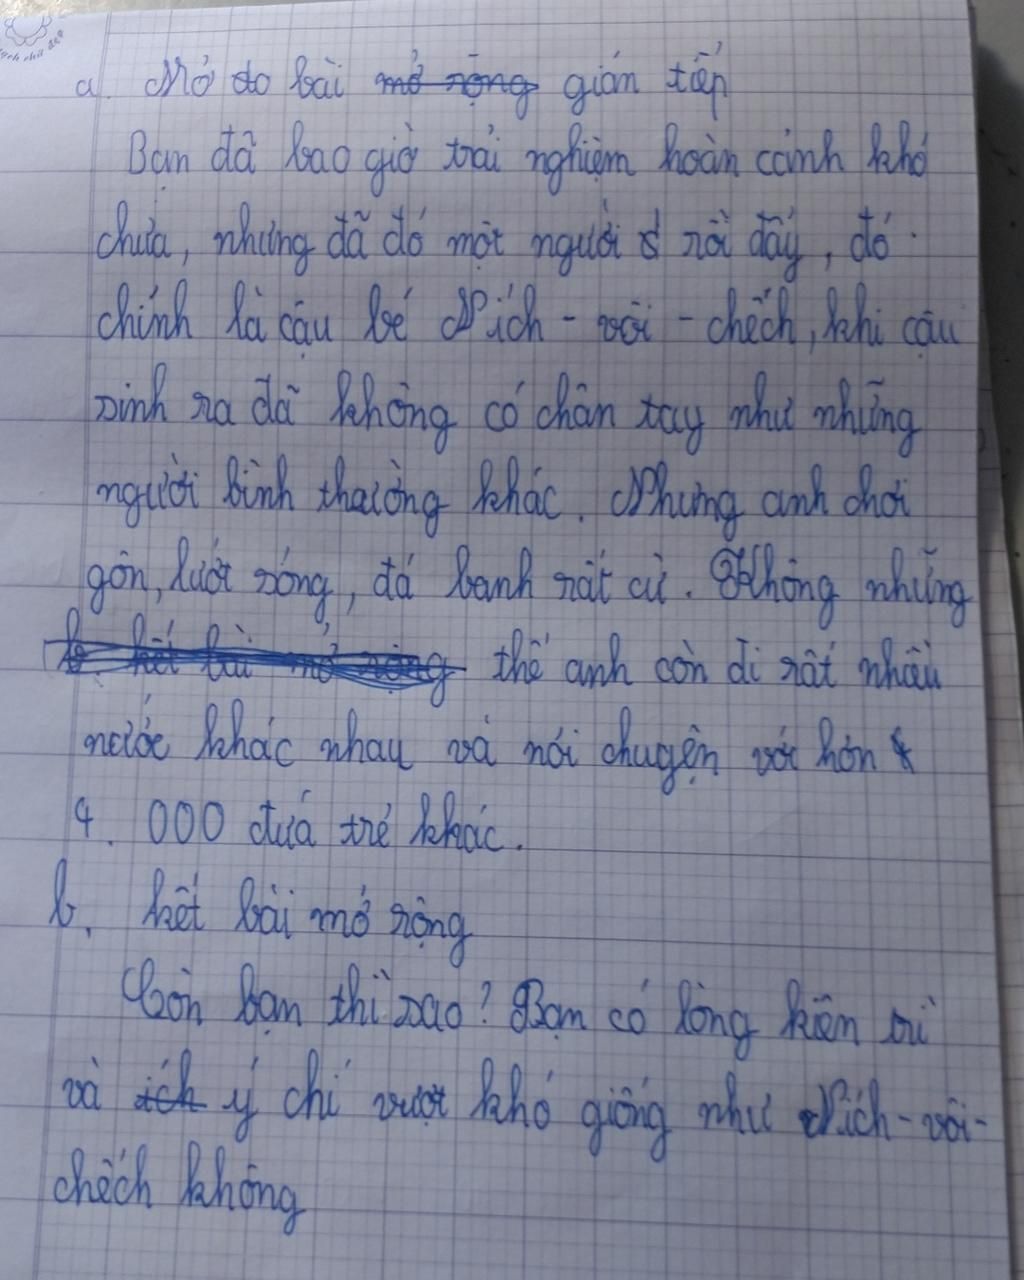 ạch chữ đẹp
a. Mở do bài mở rộng gián tiếp
Bạn đã bao giờ trải nghiệm hoàn cảnh khó
chưa, nhưng đã đó một người rồi đấy, đó
chính là cậu bé Ních - vôi - chếch, khi cậu
sinh ra đã không có chân tay như những
người bình thường khác. Nhưng anh chơi
gôn, lướt sóng, đá banh rất cừ. Không những
b. kết bài mở rộng thế anh còn đi rất nhiều
nước khác nhau và nói chuyện với hơn
4. 000 đứa trẻ khác.
b. kết bài mở rộng
Còn bạn thì sao? Bạn có lòng kiên trì
và ích ý chí vượt khó giống như Ních - vôi -
chếch không